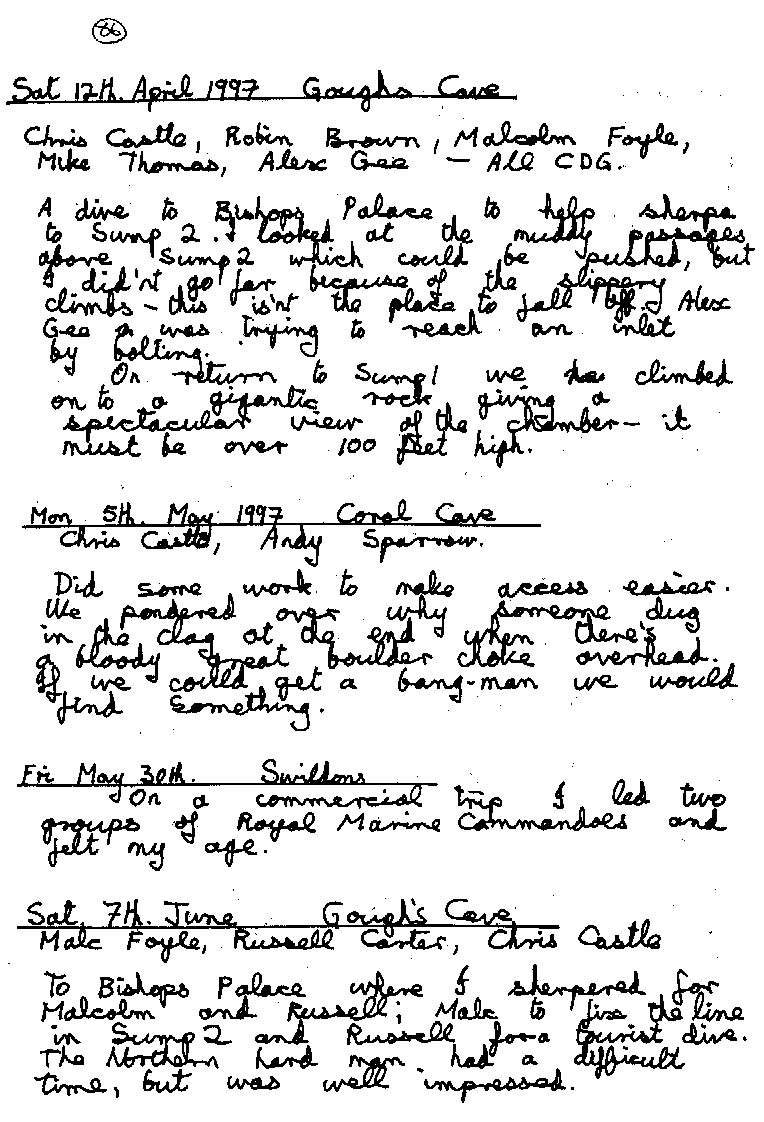 86
Sat 12th. April 1997 Goughs Cave
Chris Castle, Robin Brown, Malcolm Foyle,
Mike Thomas, Alex Gee – All CDG.
A dive to Bishops Palace to help sherpa
to Sump 2. I looked at the muddy passages
above Sump 2 which could be pushed, but
I did'nt go far because of the slippery
climbs – this is'nt the place to fall off. Alex
Gee was trying to reach an inlet
by bolting.
On return to Sump 1 we climbed
on to a gigantic rock giving a
spectacular view of the chamber – it
must be over 100 feet high.
Mon 5th. May 1997 Coral Cave
Chris Castle, Andy Sparrow.
Did some work to make access easier.
We pondered over why someone dug
in the clag at the end when there's
a bloody great boulder choke overhead.
If we could get a bang-man we would
find something.
Fri May 30th. Swildons
On a commercial trip I led two
groups of Royal Marine Commandoes and
felt my age.
Sat. 7th. June Gough's Cave
Malc Foyle, Russell Carter, Chris Castle
To Bishops Palace where I sherpered for
Malcolm and Russell; Malc to fix the line
in Sump 2 and Russell for a tourist dive.
The Northern hard man had a difficult
time, but was well impressed.